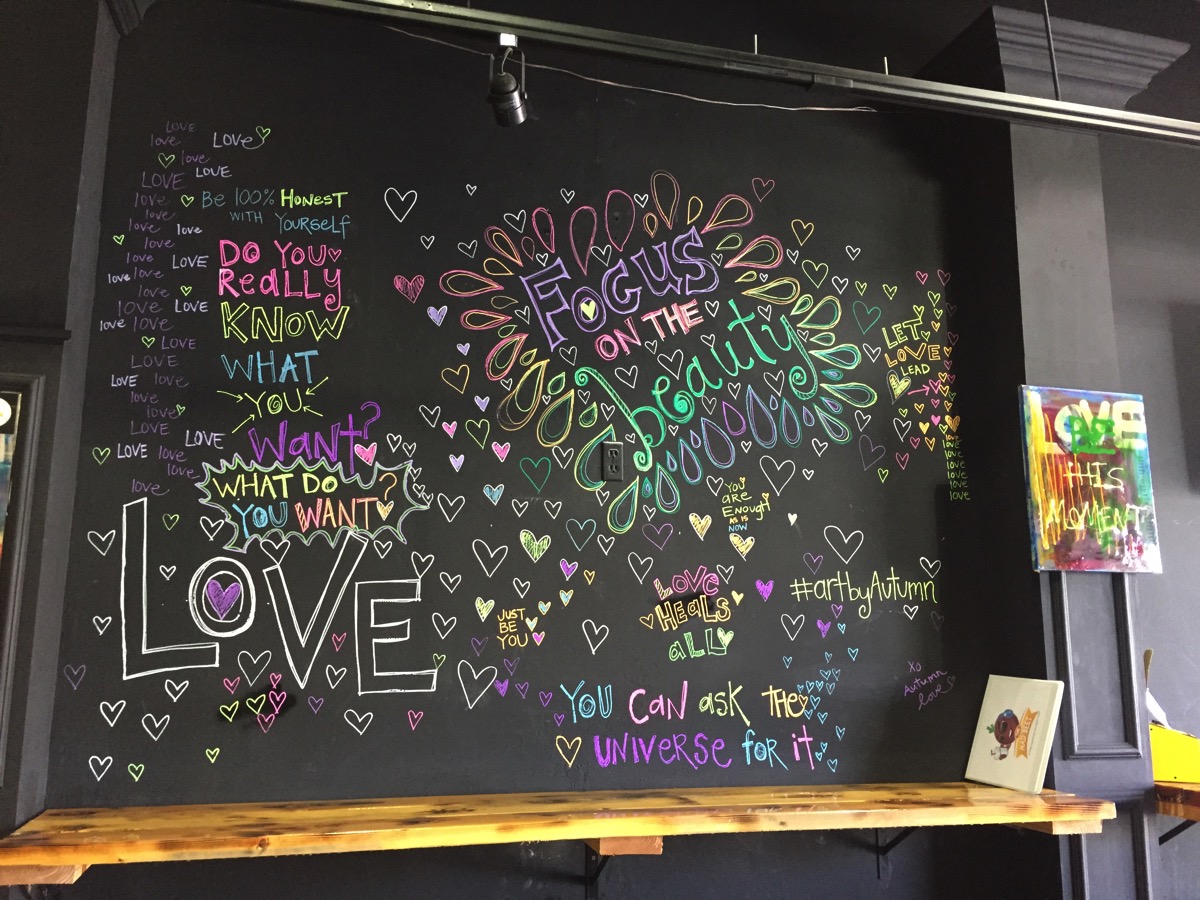 LOVE
love LOVE
love
LOVE LOVE
love
love
love love
love
love LOVE
love love
love
LOVE LOVE
love love
LOVE
LOVE
LOVE love
love
love
LOVE
LOVE
LOVE love
love
love
Be 100% HONEST
WITH YOURSELF
DO YOU
ReaLLY
KNOW
WHAT
YOU
Want?
WHAT DO
YOU WANT?
LOVE
FOCUS
ON THE
beauty
LET
LOVE
LEAD
love
love
love
love
love
love
love
YOU
are
ENOUGH
AS IS
NOW
JUST
BE
YOU
LOVE
HEALS
aLL
#artbyAutumn
xo
Autumn
love
YOU CAN ask THE
UNIVERSE for it
LOVE
THIS
MOMENT